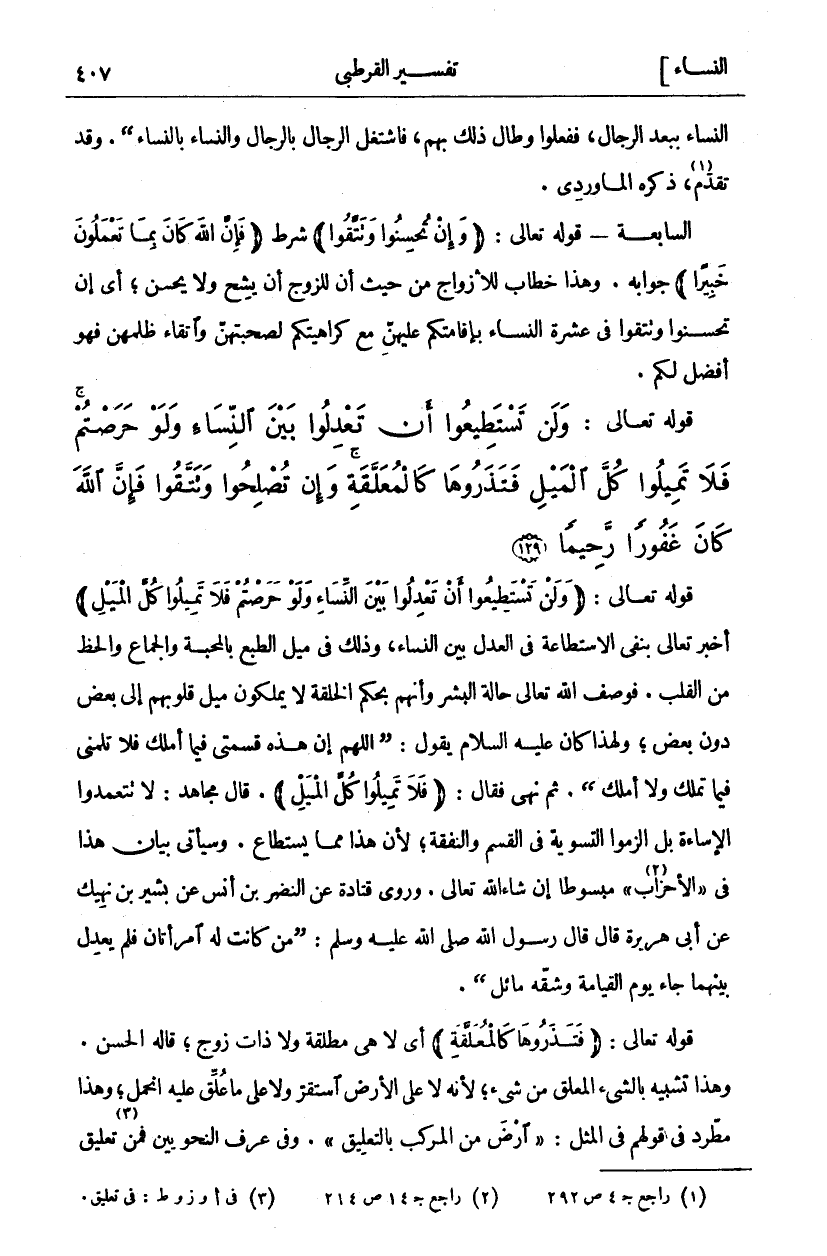 النساء ] تفسير القرطبى ٤٠٧
النساء ببعد الرجال، ففعلوا وطال ذلك بهم، فاشتغل الرجال بالرجال والنساء بالنساء“ . وقد
تقدّم(١)، ذكره الماوردى .
السابعة – قوله تعالى : ﴿ وَإِنْ تُحْسِنُوا وَتَتَّقُوا ﴾ شرط ﴿ فَإِنَّ اللهَ كَانَ بِمَا تَعْمَلُونَ
خَبِيرًا ﴾ جوابه . وهذا خطاب للأزواج من حيث أن للزوج أن يشح ولا يحسن ؛ أى إن
تحسنوا وتتقوا فى عشرة النساء بإقامتكم عليهنّ مع كراهيتكم لصحبتهنّ وٱتقاء ظلمهن فهو
أفضل لكم .
قوله تعالى : وَلَن تَسْتَطِيعُوا أَن تَعْدِلُوا بَيْنَ ٱلنِّسَاءِ وَلَوْ حَرَصْتُمْ ۚ
فَلَا تَمِيلُوا كُلَّ ٱلْمَيْلِ فَتَذَرُوهَا كَالْمُعَلَّقَةِ ۚ وَإِن تُصْلِحُوا وَتَتَّقُوا فَإِنَّ ٱللَّهَ
كَانَ غَفُورًا رَّحِيمًا ﴿١٢٩﴾
قوله تعالى : ﴿ وَلَنْ تَسْتَطِيعُوا أَنْ تَعْدِلُوا بَيْنَ النِّسَاءِ وَلَوْ حَرَصْتُمْ فَلَا تَمِيلُوا كُلَّ الْمَيْلِ ﴾
أخبر تعالى بنفى الاستطاعة فى العدل بين النساء، وذلك فى ميل الطبع بالمحبة والجماع والحظ
من القلب . فوصف الله تعالى حالة البشر وأنهم بحكم الخلقة لا يملكون ميل قلوبهم إلى بعض
دون بعض ؛ ولهذا كان عليه السلام يقول : ”اللهم إن هذه قسمتى فيما أملك فلا تلمنى
فيما تملك ولا أملك“ . ثم نهى فقال : ﴿ فَلَا تَمِيلُوا كُلَّ الْمَيْلِ ﴾ . قال مجاهد : لا تتعمدوا
الإساءة بل الزموا التسوية فى القسم والنفقة ؛ لأن هذا مما يستطاع . وسيأتى بيان هذا
فى «الأحزاب»(٢) مبسوطا إن شاء الله تعالى . وروى قتادة عن النضر بن أنس عن بشير بن نهيك
عن أبى هريرة قال قال رسول الله صلى الله عليه وسلم : ”من كانت له ٱمرأتان فلم يعدل
بينهما جاء يوم القيامة وشقّه مائل“ .
قوله تعالى : ﴿ فَتَذَرُوهَا كَالْمُعَلَّقَةِ ﴾ أى لا هى مطلقة ولا ذات زوج ؛ قاله الحسن .
وهذا تشبيه بالشىء المعلق من شىء ؛ لأنه لا على الأرض ٱستقرّ ولا على ما عُلِّق عليه انحمل ؛ وهذا
مطّرد فى قولهم فى المثل : « ٱرْضَ من المركب بالتعليق » . وفى عرف النحويين فمن تعليق(٣)
(١) راجع جـ ٤ ص ٢٩٢ (٢) راجع جـ ١٤ ص ٢١٤ (٣) فى أ و ز و ط : فى تعليق .